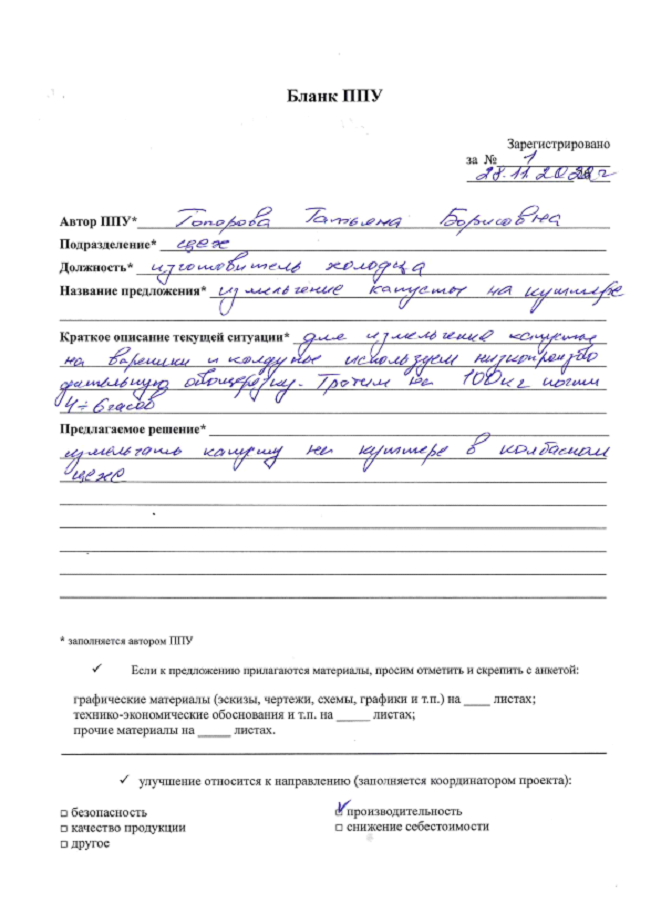 Бланк ППУ
Зарегистрировано
за № 1
28.11.2022 г
Автор ППУ* Топорова Татьяна Борисовна
Подразделение* цех
Должность* изготовитель холодца
Название предложения* измельчение капусты на куттере
Краткое описание текущей ситуации* для измельчения капусты
на вареники и колдуны используем низкопроизво
дительную овощерезку. Тратим на 100 кг почти
4÷6 часов
Предлагаемое решение*
измельчать капусту на куттере в колбасном
цехе
* заполняется автором ППУ
✓ Если к предложению прилагаются материалы, просим отметить и скрепить с анкетой:
графические материалы (эскизы, чертежи, схемы, графики и т.п.) на ____ листах;
технико-экономические обоснования и т.п. на _____ листах;
прочие материалы на _____ листах.
✓ улучшение относится к направлению (заполняется координатором проекта):
□ безопасность
□ качество продукции
□ другое
☑ производительность
□ снижение себестоимости